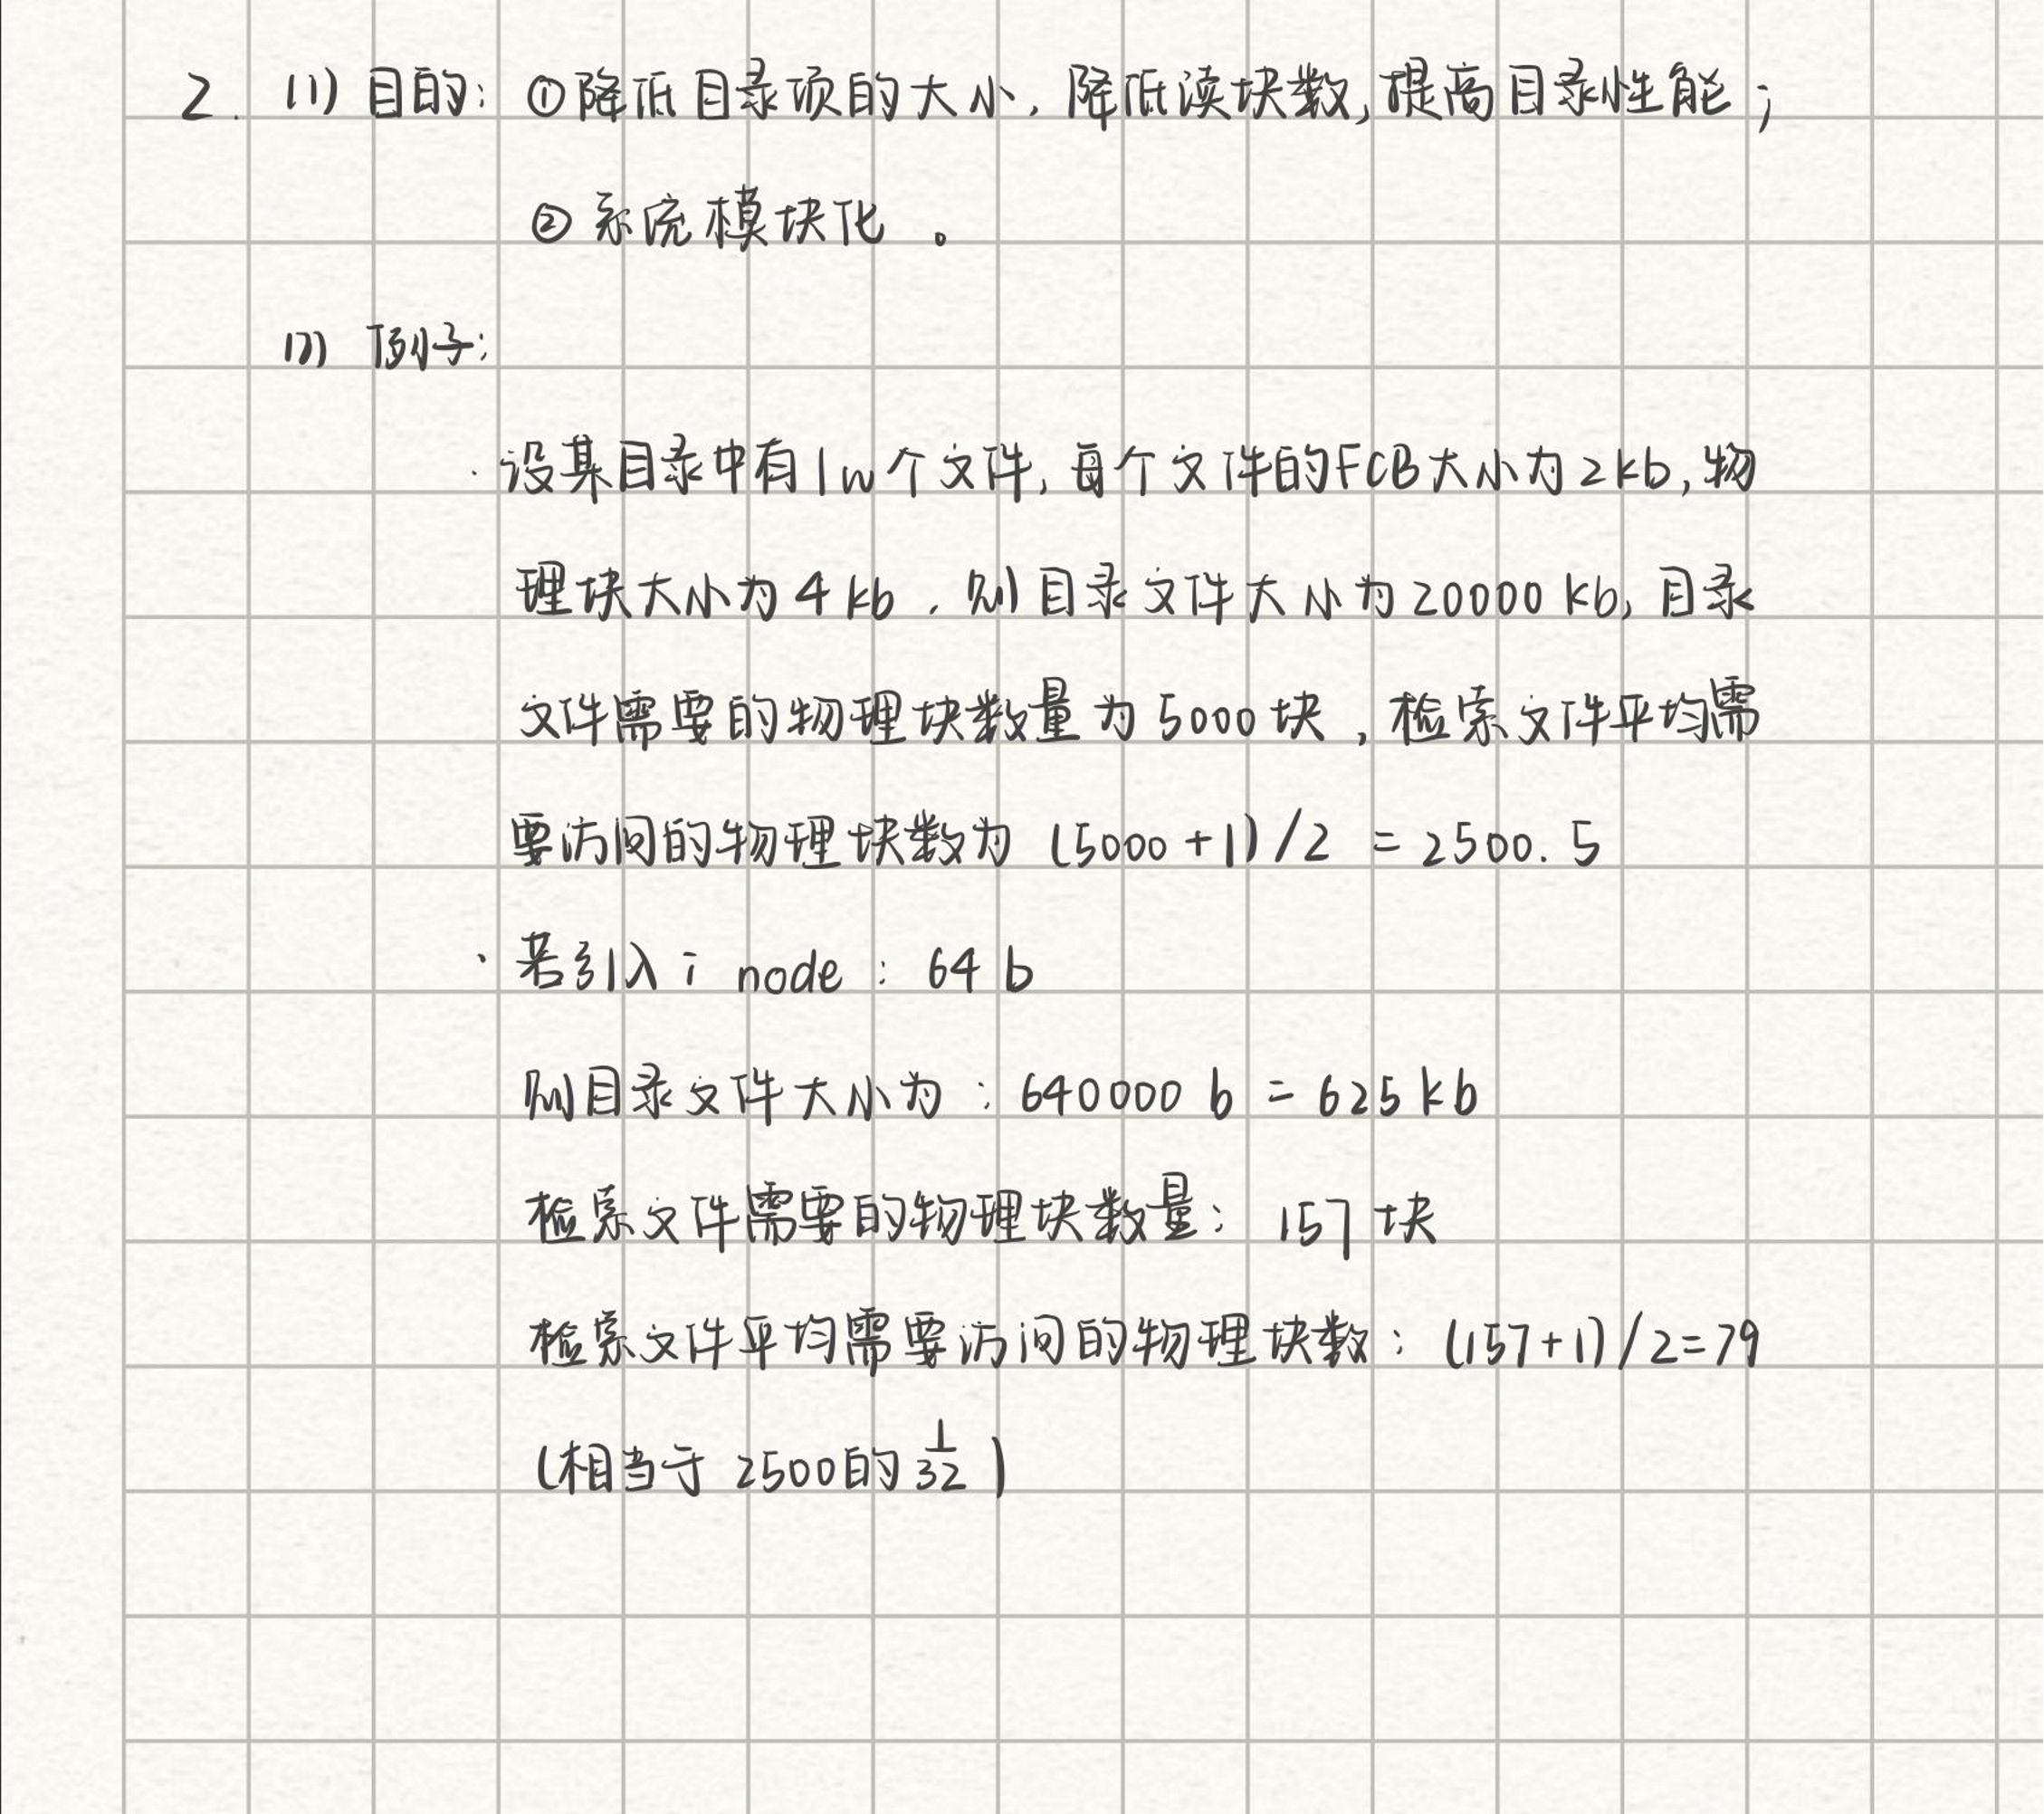 2. (1) 目的: ①降低目录项的大小, 降低读块数, 提高目录性能;
② 系统模块化 。
(2) 例子:
· 设某目录中有1w个文件, 每个文件的FCB大小为2kb, 物
理块大小为4kb , 则目录文件大小为20000kb, 目录
文件需要的物理块数量为5000块 , 检索文件平均需
要访问的物理块数为 (5000+1)/2 = 2500.5
· 若引入i node : 64 b
则目录文件大小为 : 640000 b = 625 kb
检索文件需要的物理块数量: 157 块
检索文件平均需要访问的物理块数: (157+1)/2=79
(相当于 2500的 1/32 )